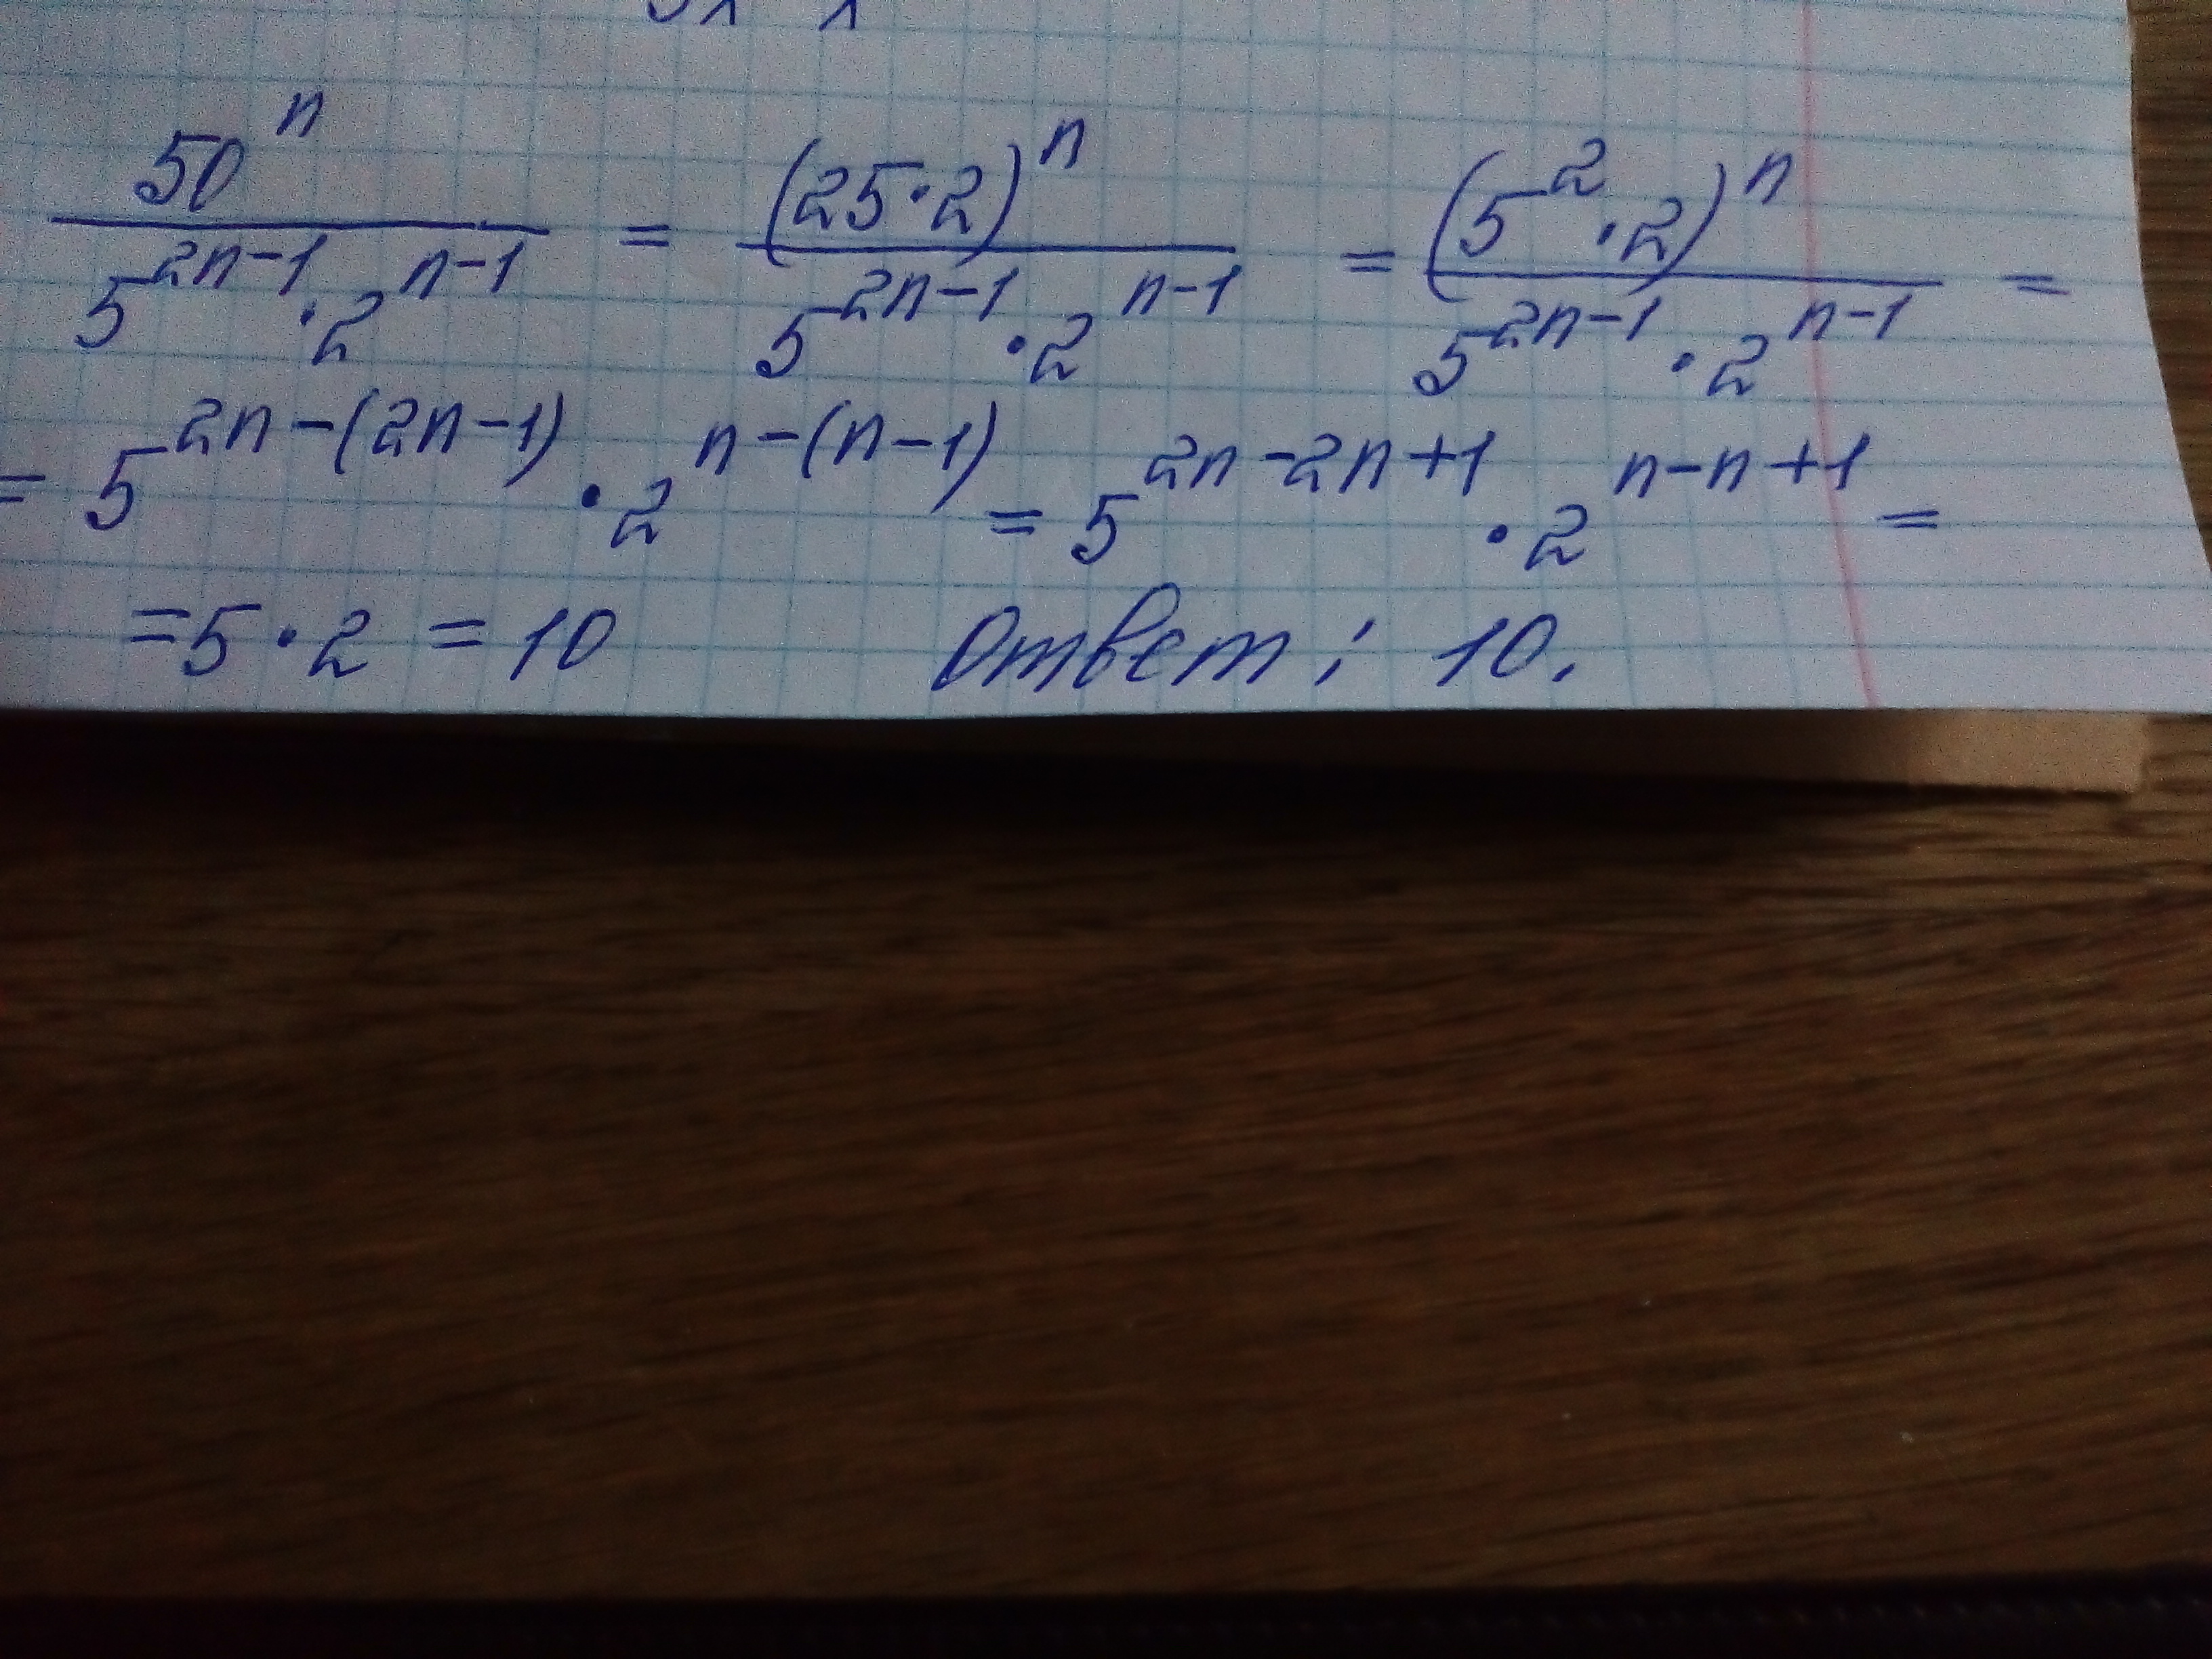 50^n / (5^(2n-1) · 2^(n-1)) = (25·2)^n / (5^(2n-1) · 2^(n-1)) = (5^2 · 2)^n / (5^(2n-1) · 2^(n-1)) =
= 5^(2n-(2n-1)) · 2^(n-(n-1)) = 5^(2n-2n+1) · 2^(n-n+1) =
= 5 · 2 = 10 Ответ: 10.